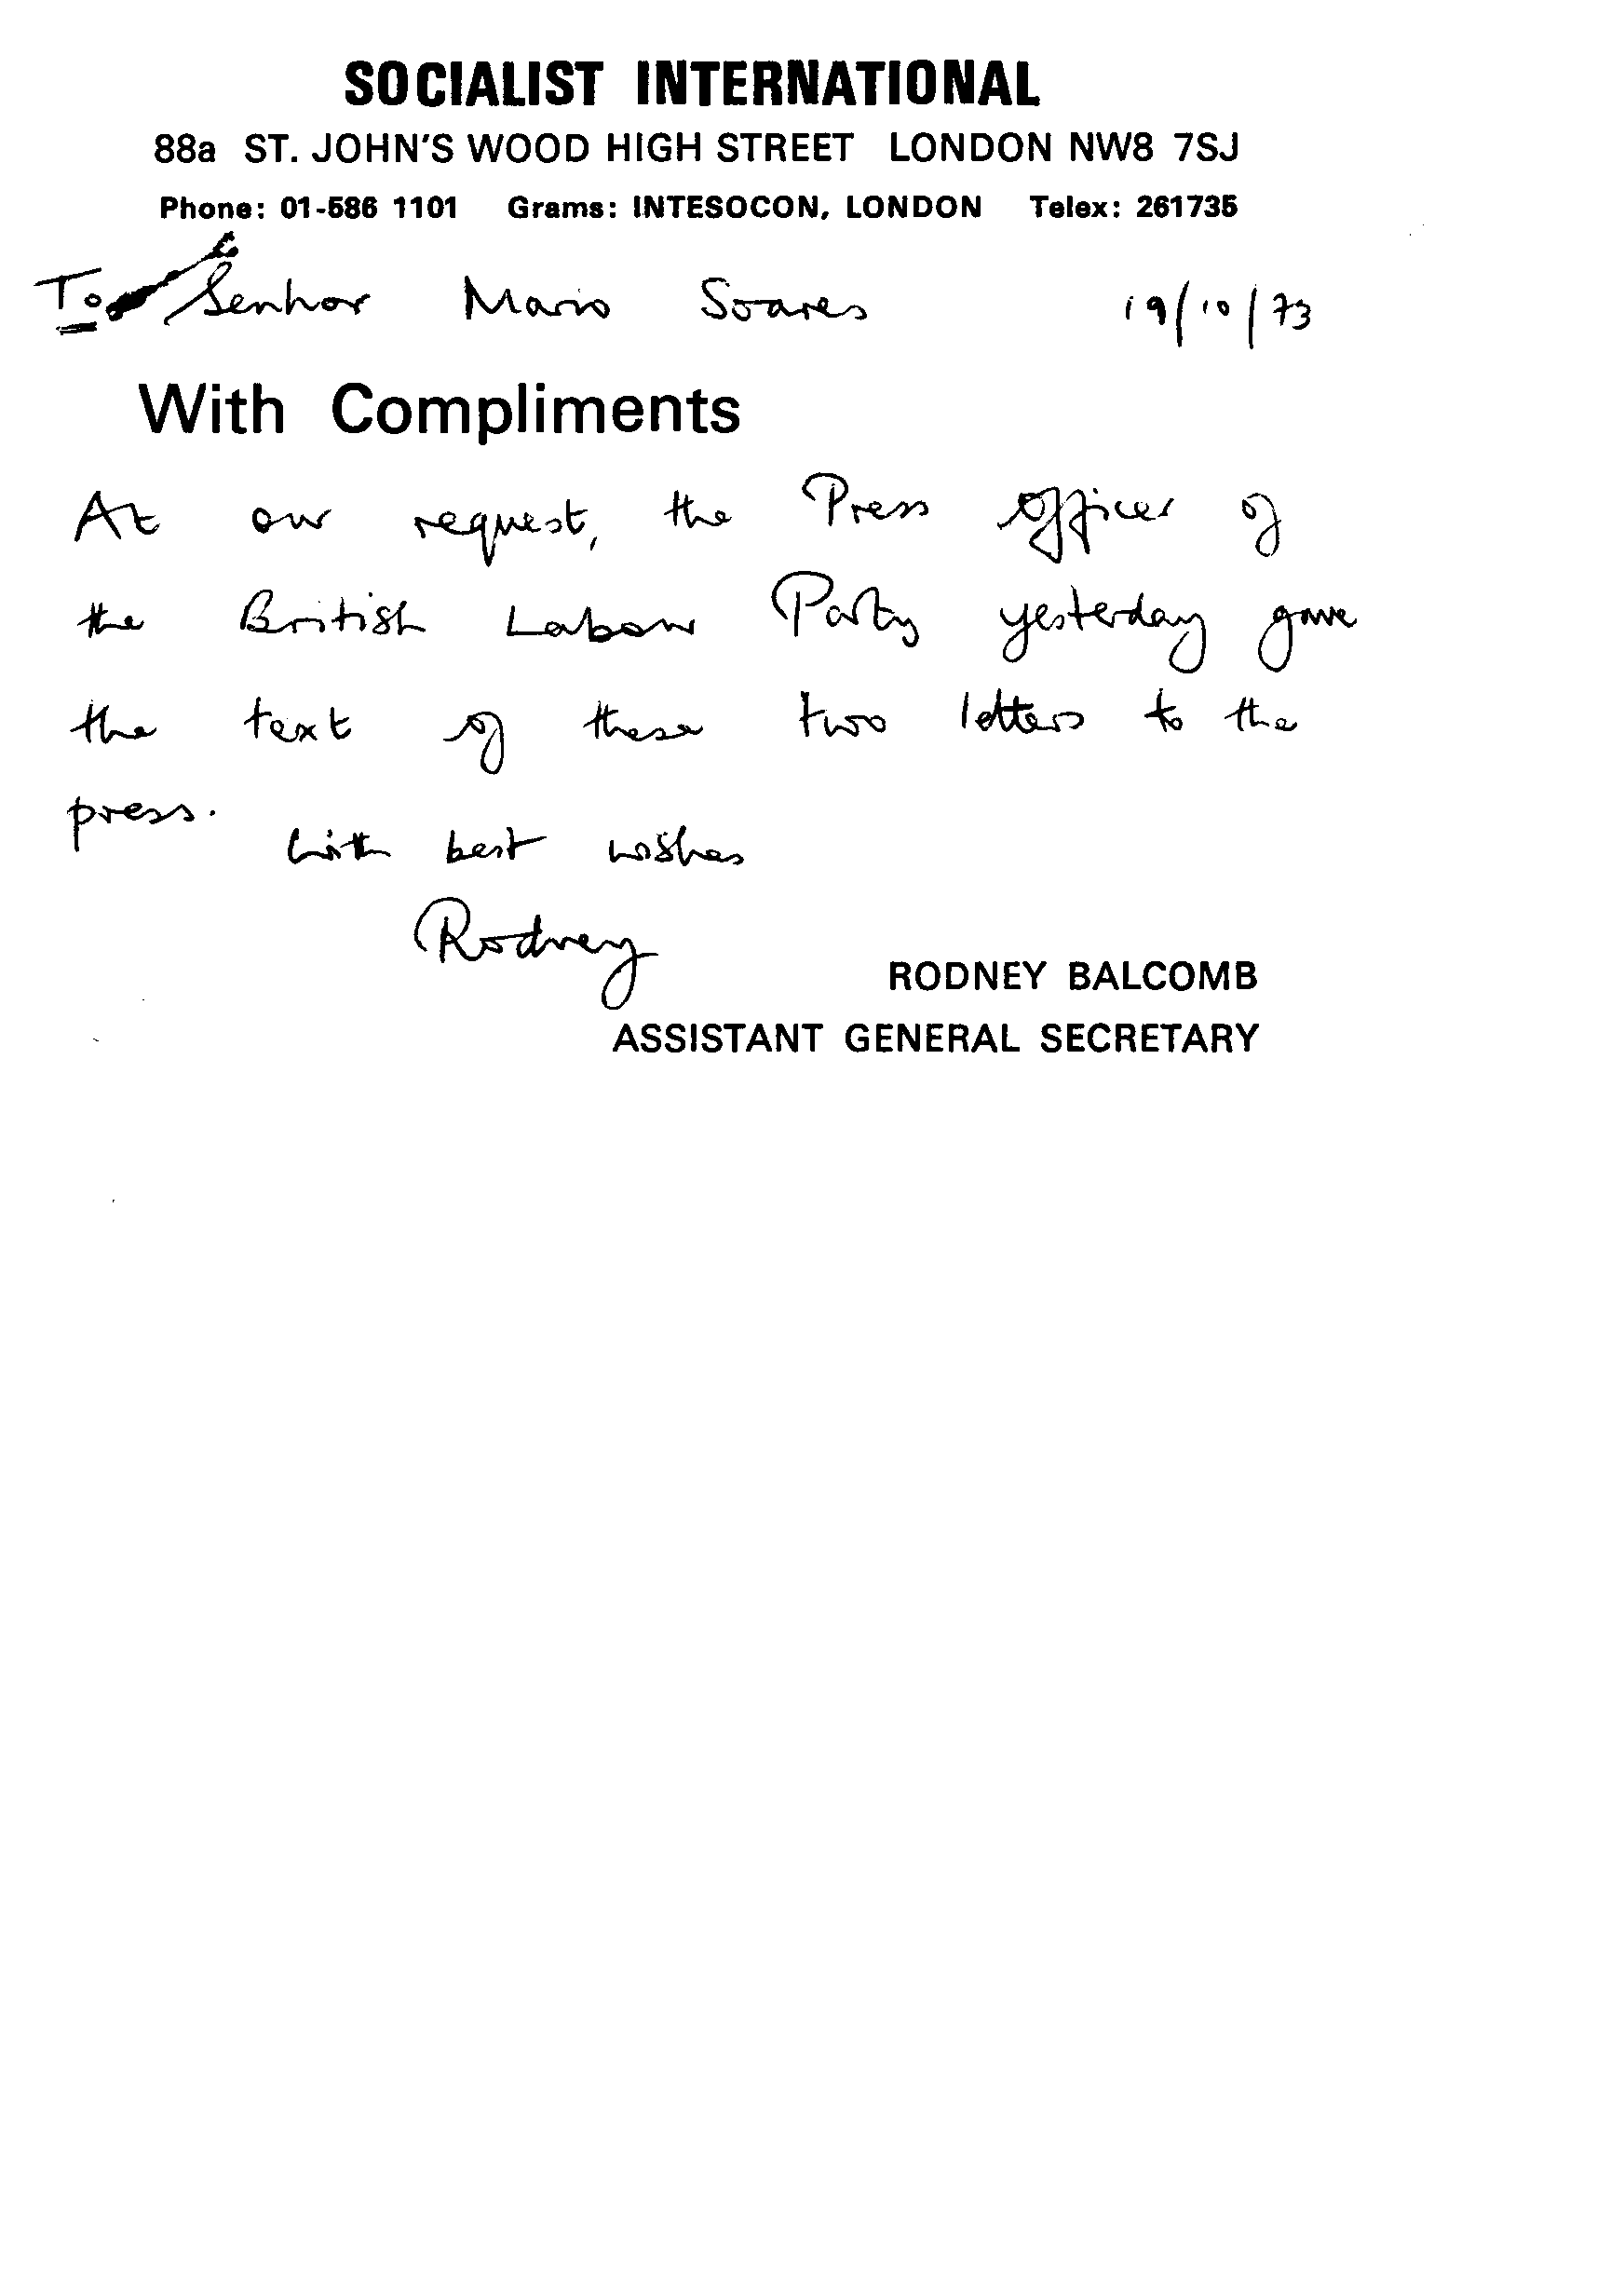 SOCIALIST INTERNATIONAL
88a ST. JOHN'S WOOD HIGH STREET LONDON NW8 7SJ
Phone: 01-586 1101 Grams: INTESOCON, LONDON Telex: 261735
To Senhor Mario Soares 19/10/73
With Compliments
At our request, the Press Officer of
the British Labour Party yesterday gave
the text of these two letters to the
press.
With best wishes
Rodney
RODNEY BALCOMB
ASSISTANT GENERAL SECRETARY